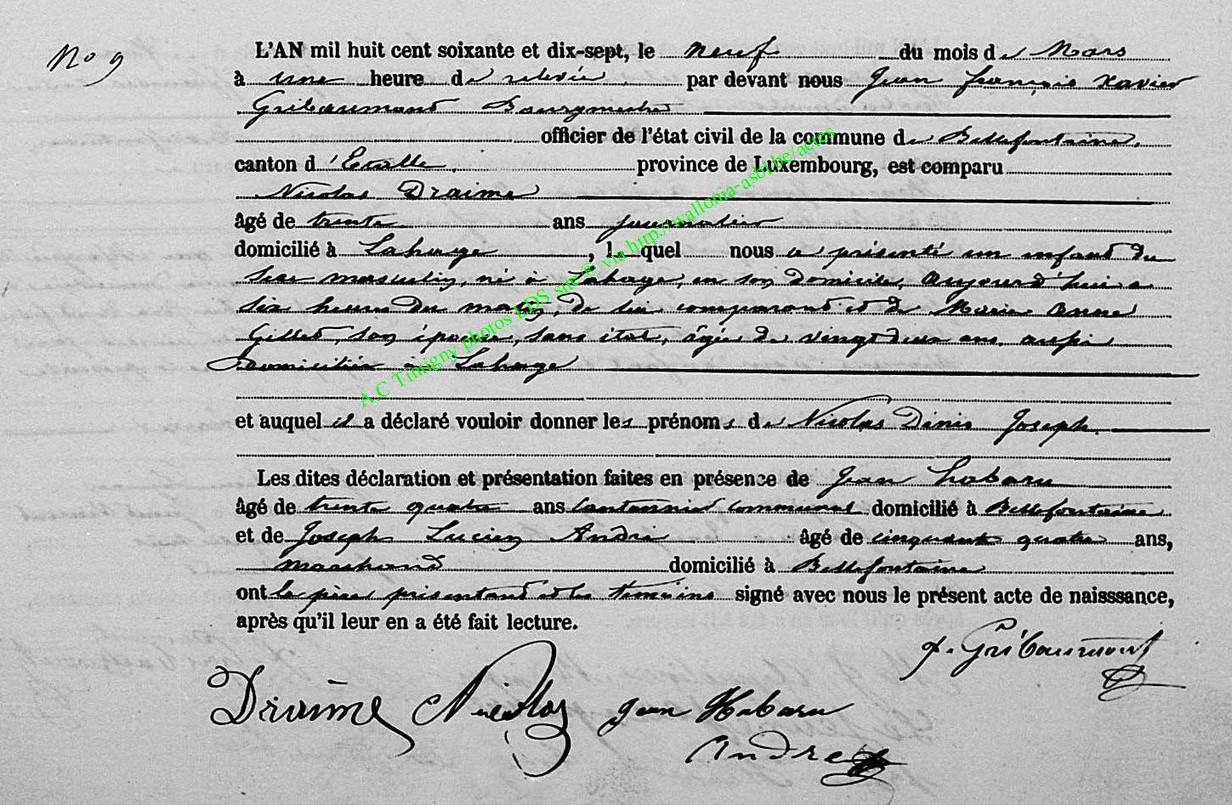 No 9
L'AN mil huit cent soixante et dix-sept, le neuf du mois de Mars
à une heure de relevée par devant nous Jean François Xavier
Gribaumont Bourgmestre
officier de l'état civil de la commune de Bellefontaine,
canton d'Etalle, province de Luxembourg, est comparu
Nicolas Draime
âgé de trente ans journalier
domicilié à Lahage, lequel nous a présenté un enfant du
sexe masculin, né à Lahage, en son domicile, aujourd'hui à
six heures du matin, de lui comparant et de Marie Anne
Gillet, son épouse, sans état, âgée de vingt deux ans, aussi
domiciliée à Lahage
et auquel il a déclaré vouloir donner les prénoms de Nicolas Dinis Joseph.
Les dites déclaration et présentation faites en présence de Jean Habaru
âgé de trente quatre ans Cantonnier communal domicilié à Bellefontaine
et de Joseph Lucien André âgé de cinquante quatre ans,
marchand domicilié à Bellefontaine
ont le père présentant et les témoins signé avec nous le présent acte de naisssance,
après qu'il leur en a été fait lecture.
Gribaumont
Draime Nicolas Jean Habaru
Andre
A.C Tintigny photos LDS site © via http://wallonia-asbl.be/actes